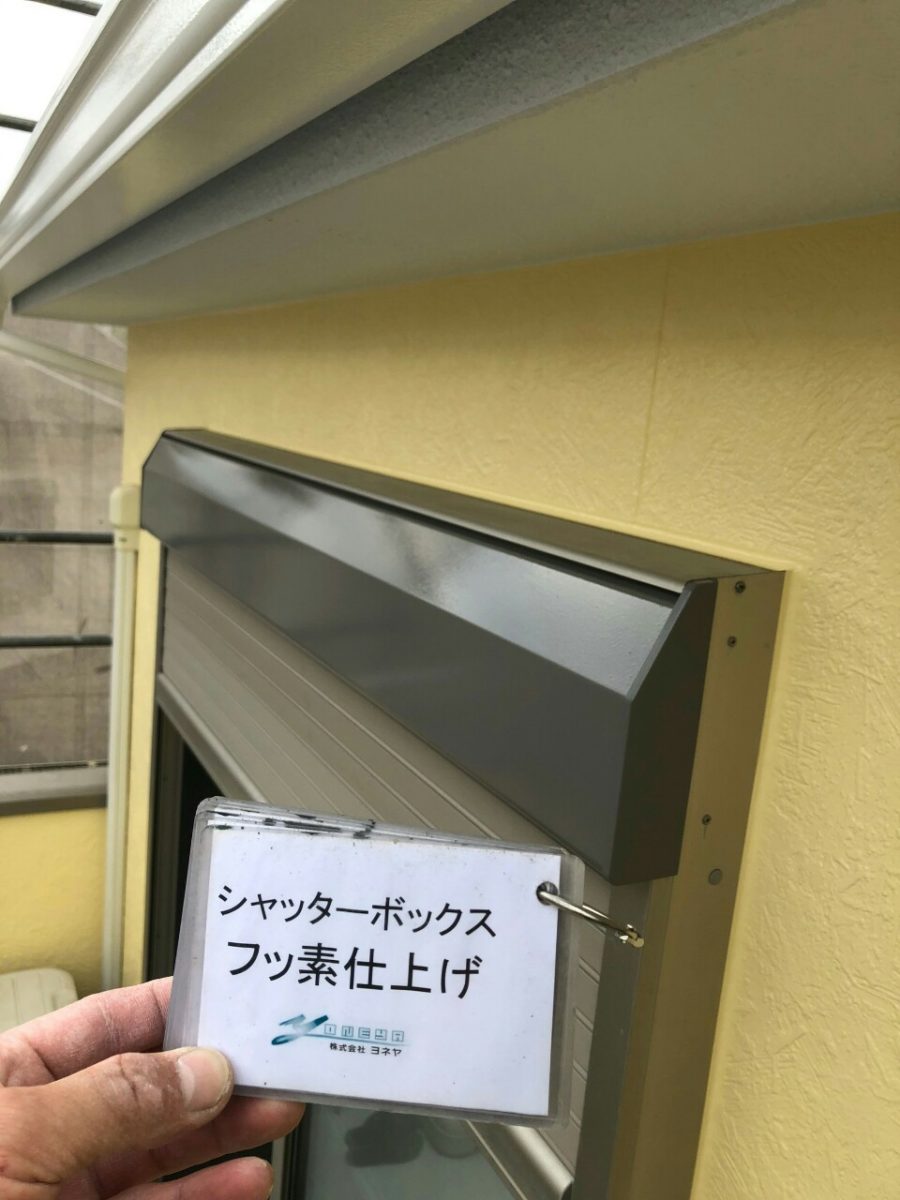 シャッターボックス
フッ素仕上げ
株式会社 ヨネヤ